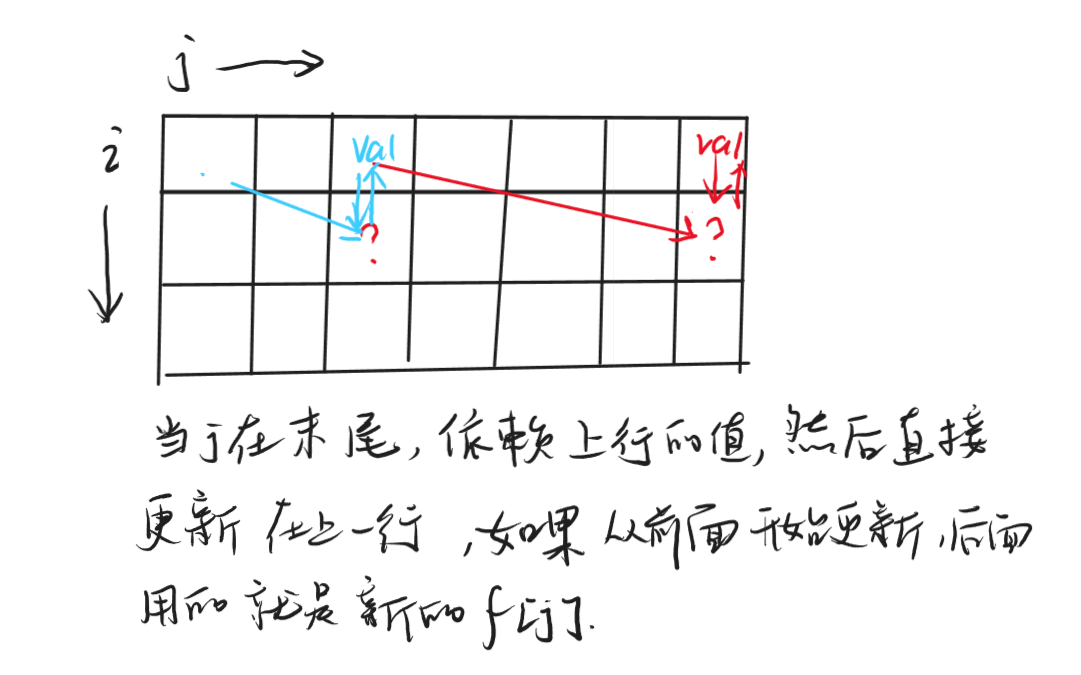 j
i
val val
? ?
当j在末尾,依赖上行的值,然后直接
更新在上一行,如果从前面开始更新,后面
用的就是新的f[j].